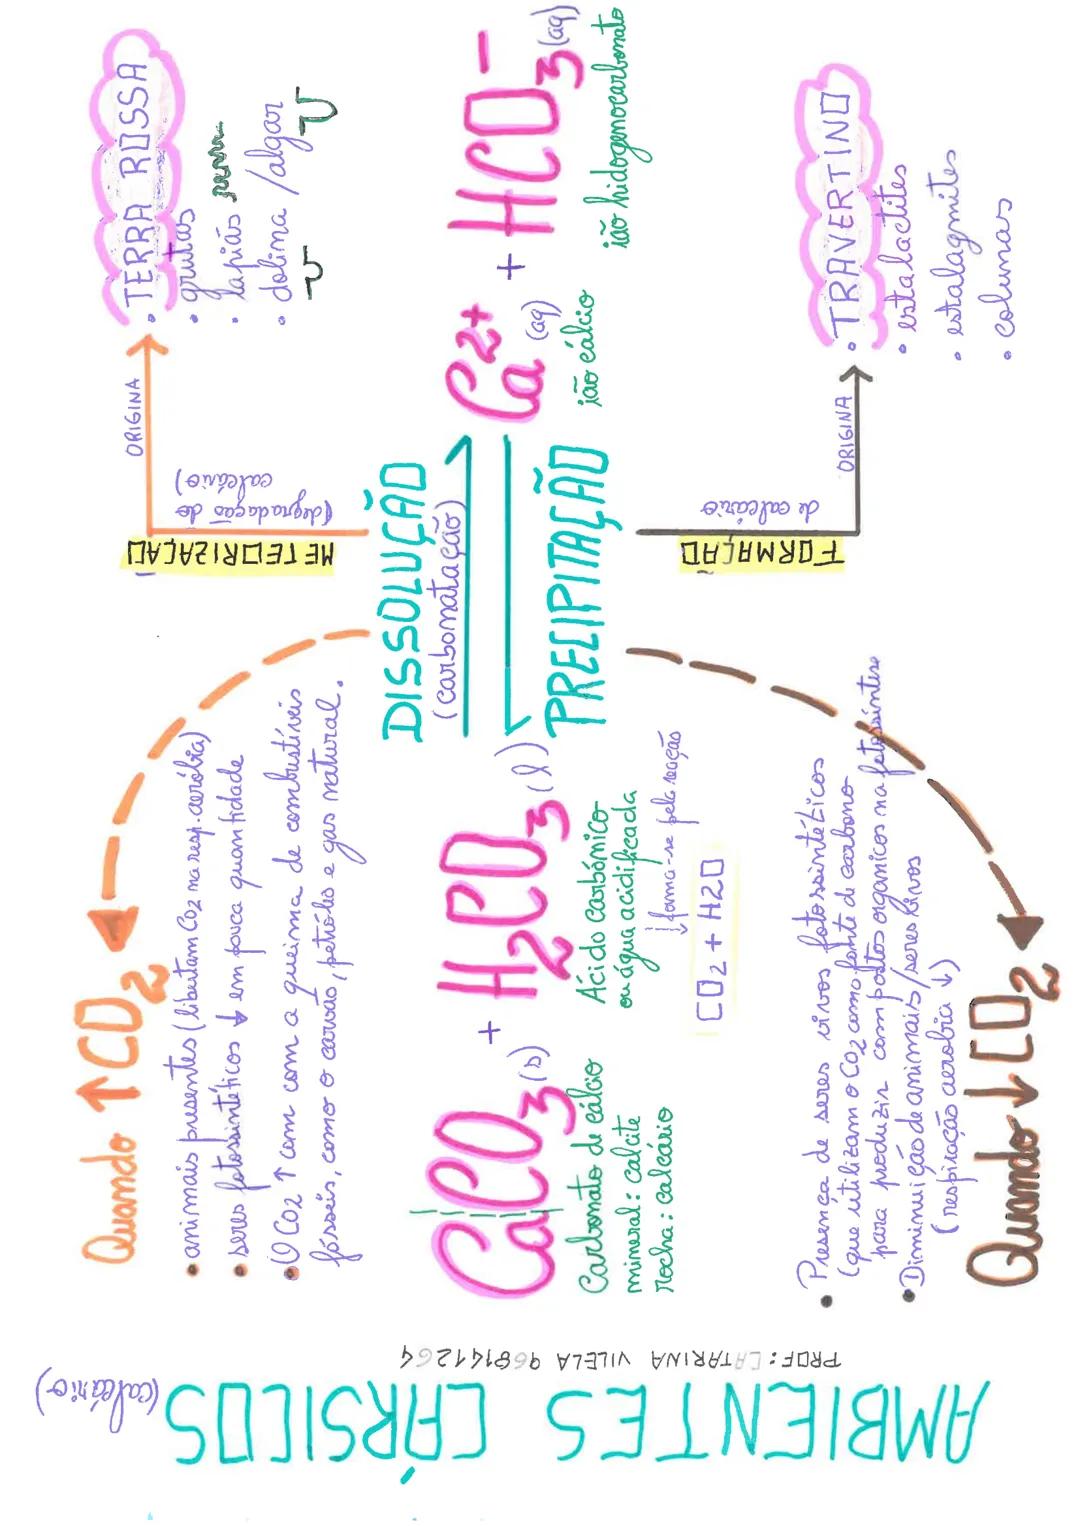 AMBIENTES CÁRSICOS
(calcário)
PROF: CATARINA VILELA 968141264
Quando ↑ CO2
• animais presentes (libertam CO2 na resp. aeróbia)
• seres fotossintéticos ↓ em pouca quantidade
• O CO2 ↑ com com a queima de combustíveis
fósseis, como o carvão, petróleo e gas natural.
METEORIZAÇÃO
(degradação do
calcário)
ORIGINA
• TERRA ROSSA
• grutas
• lapiás
• dolina / algar
DISSOLUÇÃO
(carbonatação)
CaCO3 (s) + H2CO3 (l)
Ca2+ (aq) + HCO3- (aq)
Carbonato de cálcio
mineral: calcite
rocha: calcário
Ácido carbónico
ou água acidificada
↓ forma-se pela reação
CO2 + H2O
ião cálcio
ião hidogenocarbonato
PRECIPITAÇÃO
FORMAÇÃO
de calcário
ORIGINA
• TRAVERTINO
• estalactites
• estalagmites
• columas
• Presença de seres vivos fotossintéticos
(que utilizam o CO2 como fonte de carbono
para produzir compostos organicos na fotossintese
• Diminuição de animais/seres vivos
(respiração aerobia ↓)
Quando ↓ CO2